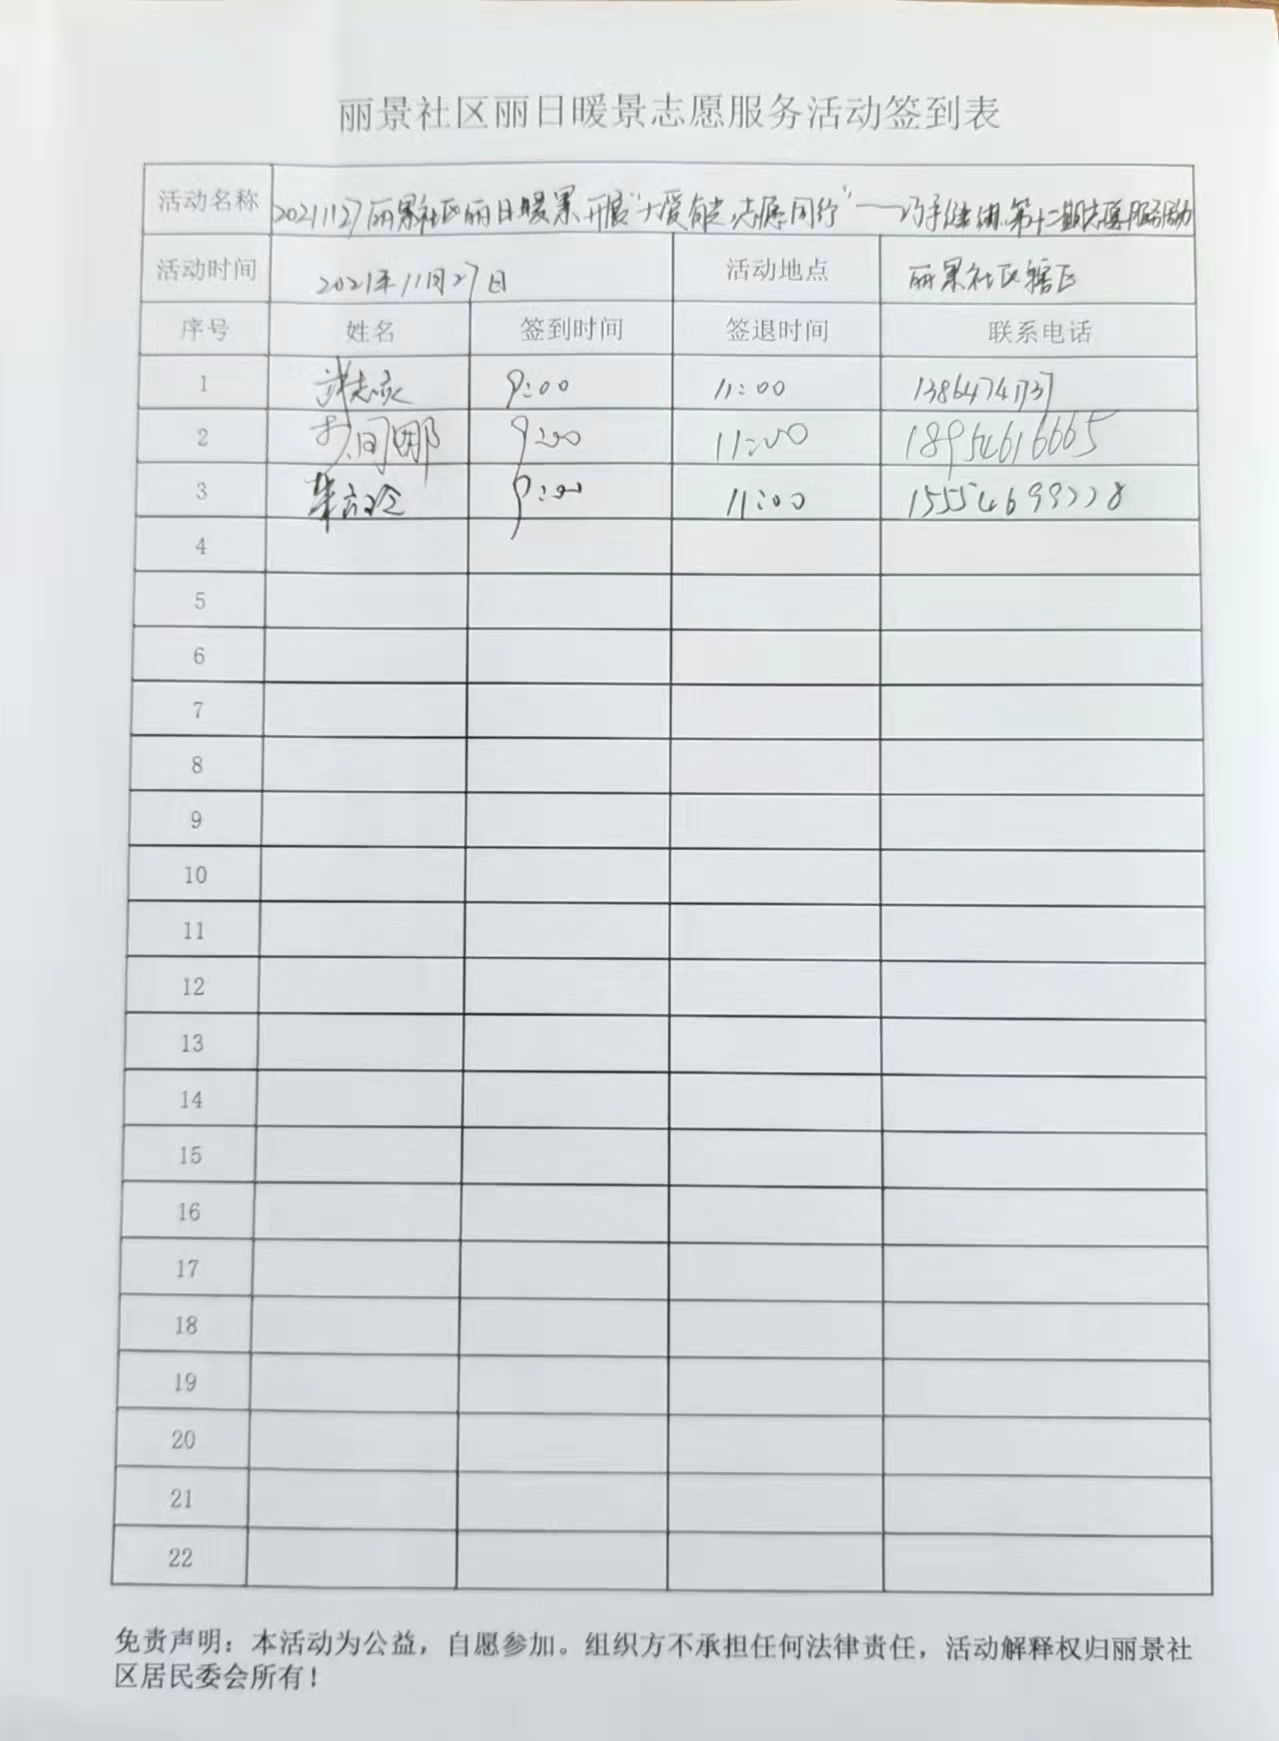 丽景社区丽日暖景志愿服务活动签到表
活动名称 20211127丽景社区丽日暖景开展“大爱有光,志愿同行”——巧手缝纫第十二期志愿服务活动
活动时间 2021年11月27日 活动地点 丽景社区辖区
序号 姓名 签到时间 签退时间 联系电话
1 9:00 11:00 13864741737
2 9:00 11:00 18954616665
3 9:00 11:00 15554699228
4
5
6
7
8
9
10
11
12
13
14
15
16
17
18
19
20
21
22
免责声明：本活动为公益，自愿参加。组织方不承担任何法律责任，活动解释权归丽景社
区居民委会所有！